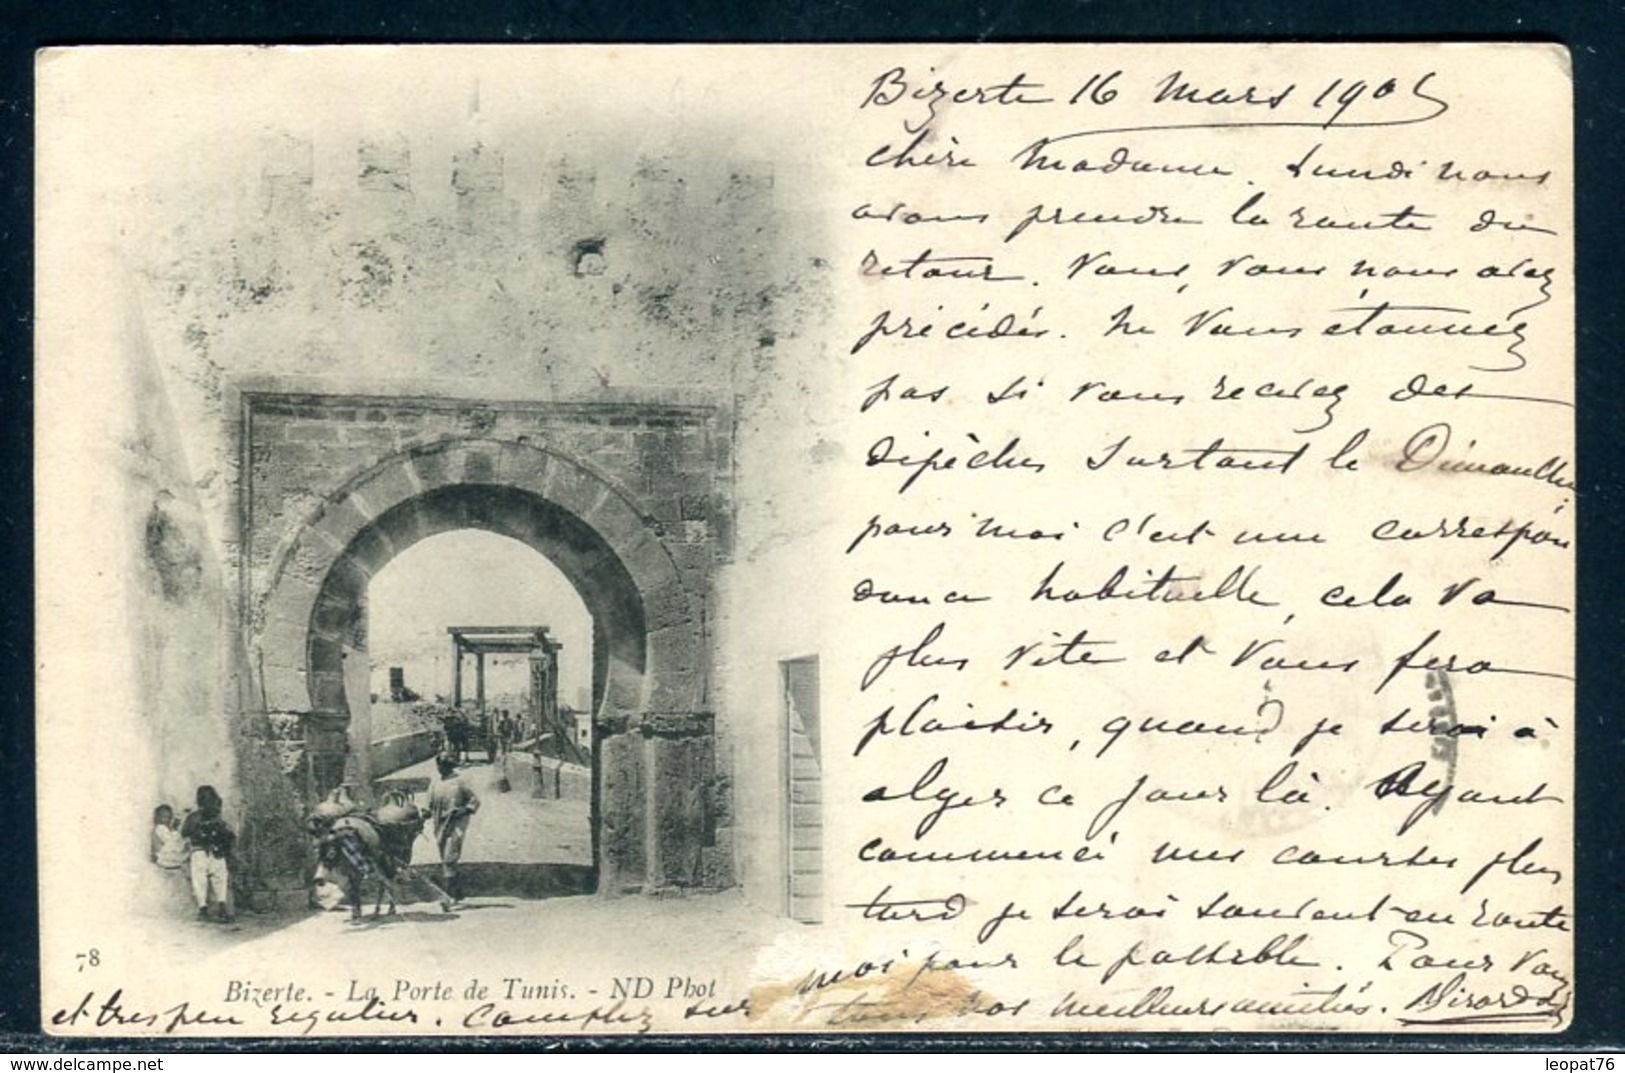 Bizerte 16 Mars 190
chère Madame. Lundi nous
avons prendre la route du
retour. Vous, vous nous avez
précédés. Ne vous étonnez
pas si vous recevez des
dépêches surtout le Dimanche
pour moi c'est une correspon
dance habituelle, cela va
plus vite et vous fera
plaisir, quand je serai à
alger ce jour là. Ayant
commencé mes courses plus
tard je serai souvent en route
et tres peu régulier. Comptez sur
moi pour le possible. Pour vous
tous nos meilleurs amitiés.
78
Bizerte. - La Porte de Tunis. - ND Phot
delcampe.net
leopat76